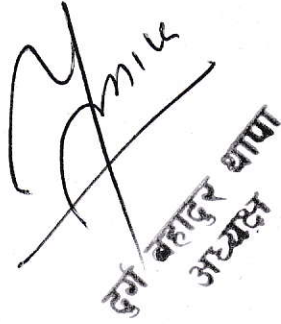 दुर्ग बहादुर थापा
अध्यक्ष